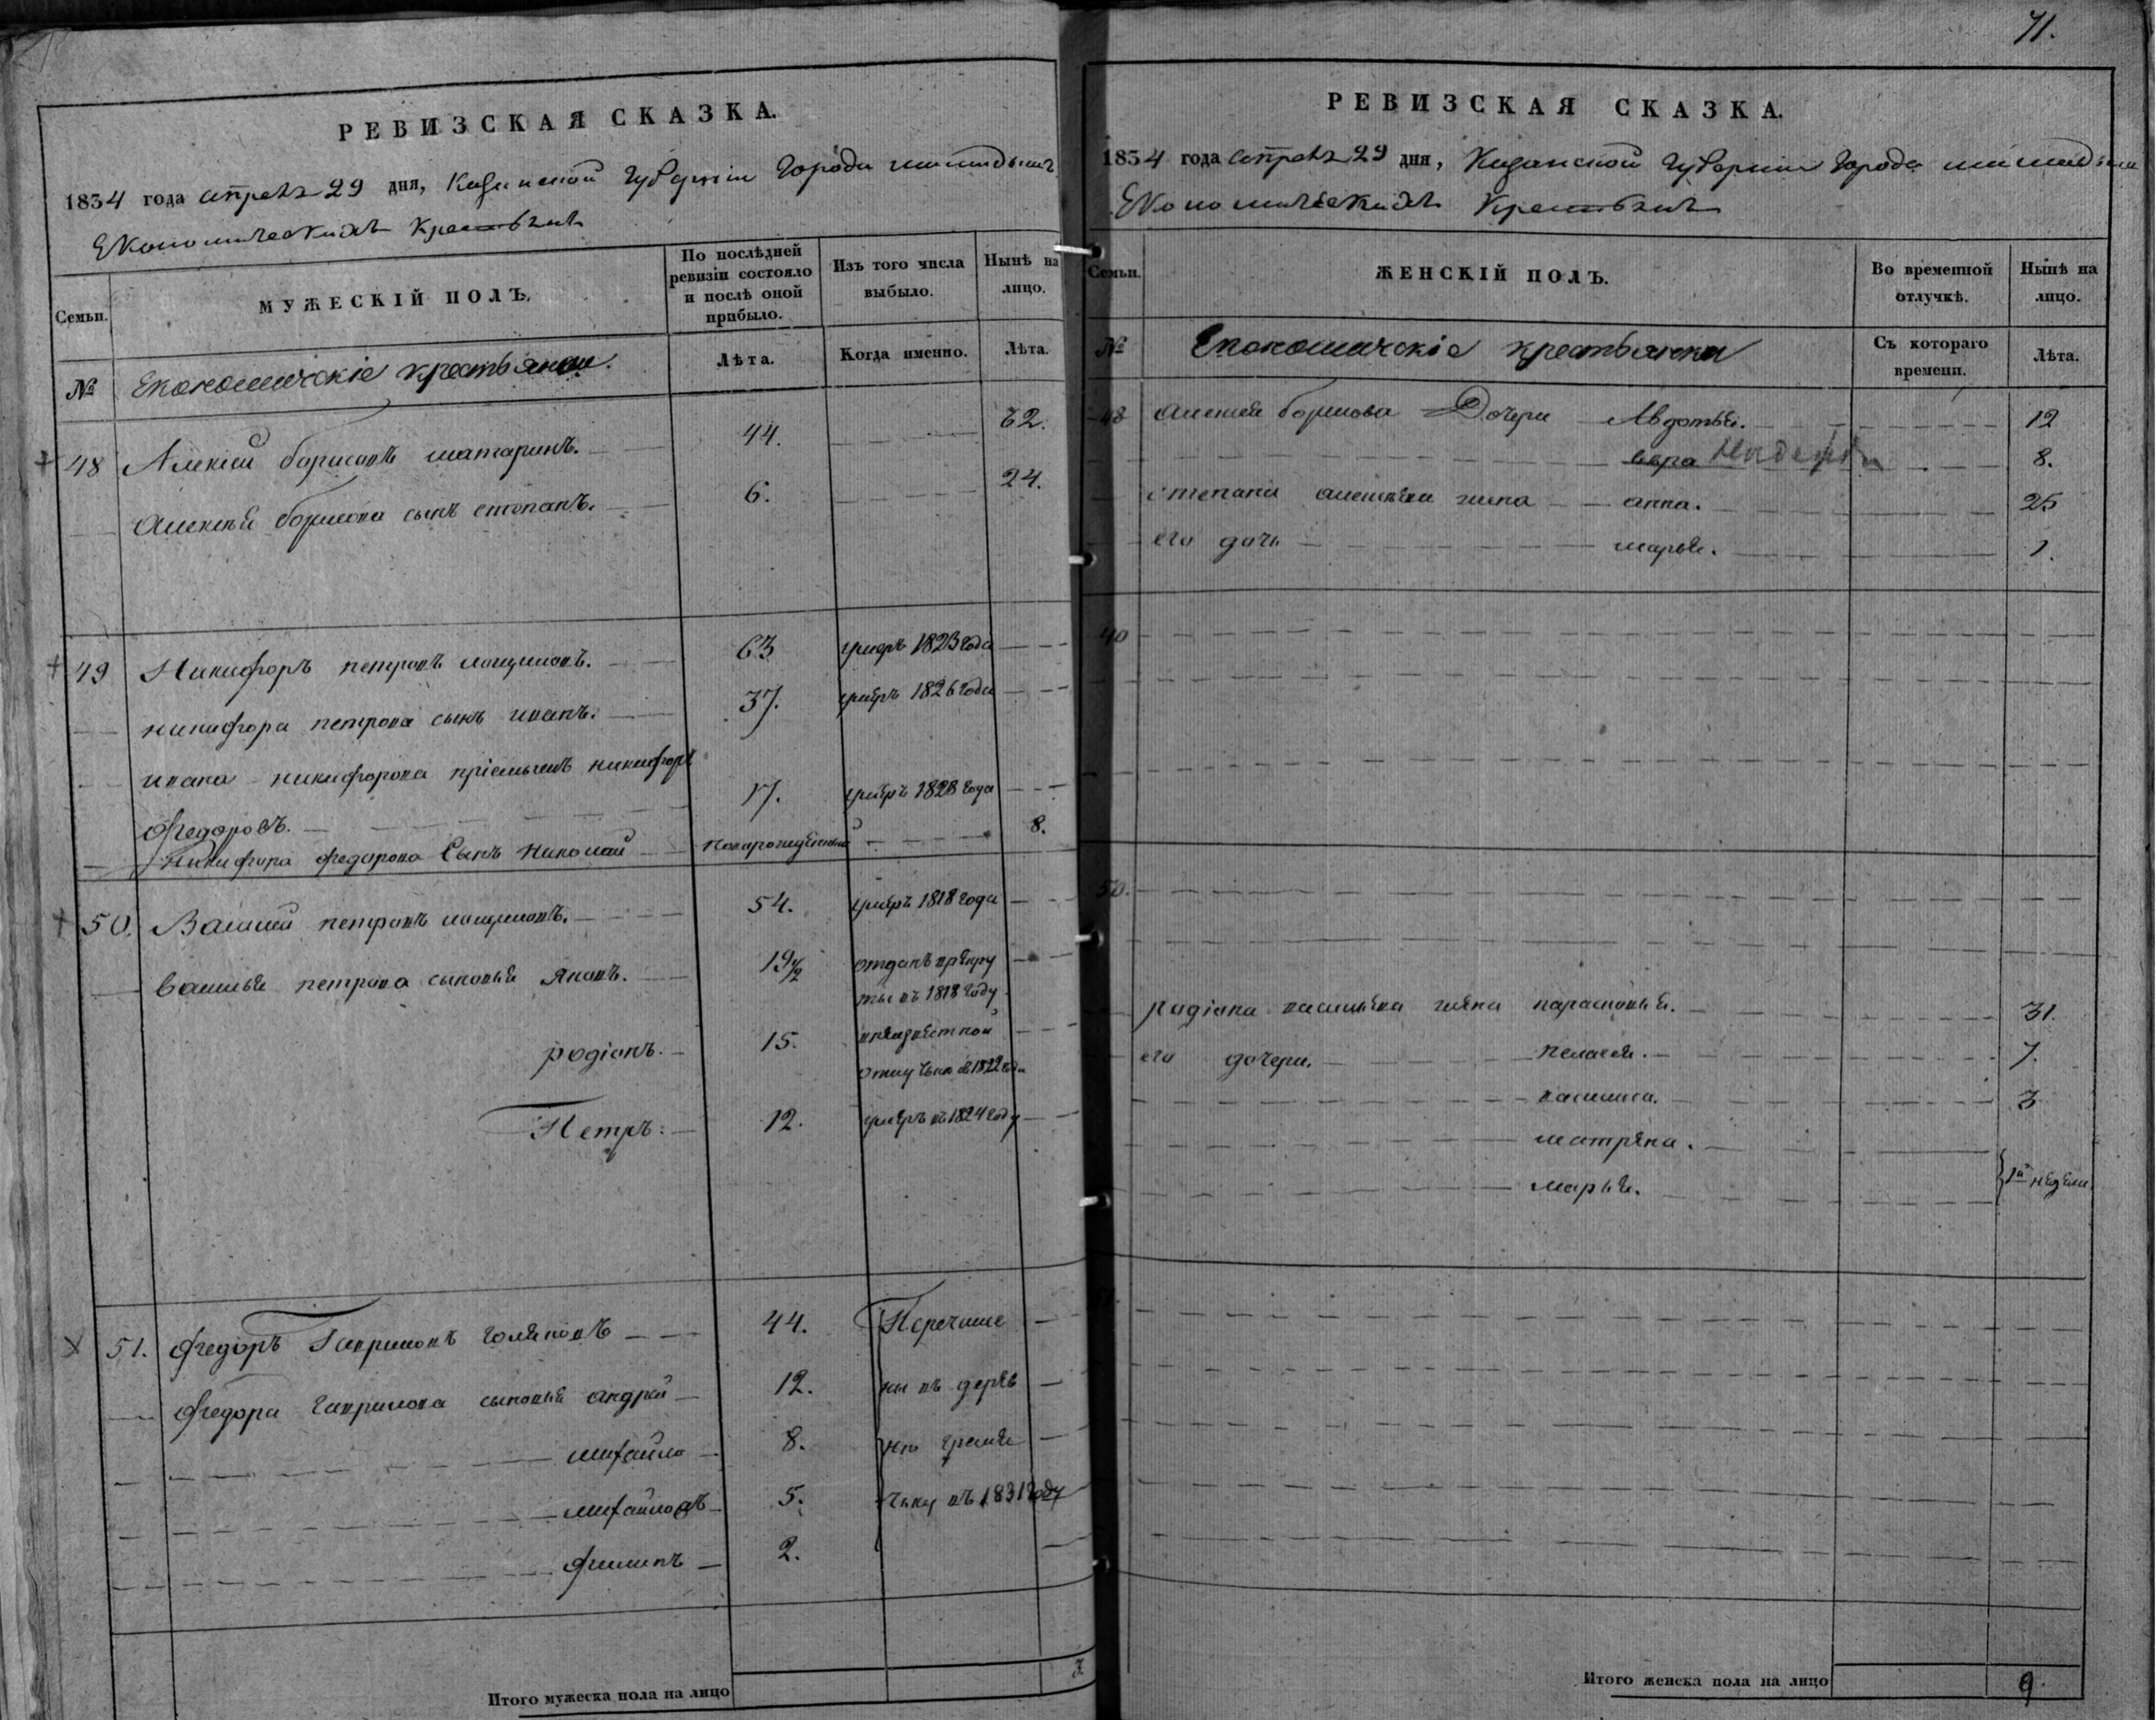 РЕВИЗСКАЯ СКАЗКА.
1834 года апреля 29 дня, Казанской Губернии Города
Економическихъ крестьянъ
Семьи. МУЖЕСКІЙ ПОЛЪ. По послѣдней ревизіи состояло и послѣ оной прибыло. Изъ того числа выбыло. Нынѣ на лицо.
№ Економическіе крестьяне. Лѣта. Когда именно. Лѣта.
48 Алексей борисовъ татаринъ. 44. 62.
алексея борисова сынъ степанъ. 6. 24.
49 Никифоръ петровъ 63 умеръ 1823 года
никифора петрова сынъ иванъ. 37. умеръ 1826 года
ивана никифорова пріемышъ никифоръ
федоровъ. 17. умеръ 1828 года
Никифора федорова сынъ николай новорожденный 8.
50. Василей петровъ 54. умеръ 1818 года
василья петрова сыновья яковъ. 19 1/2 отданъ врекру
ты въ 1818 году
родіонъ. 15. внеизвестной
отлучке с 1822 года
Петръ. 12. умеръ въ 1824 году
51. федоръ Гавриловъ 44. Перечисле
федора гаврилова сыновья андрей 12. ны въ дерев
михайло 8. ню
михайло 5. въ 1831 году
филипъ 2.
Итого мужеска пола на лицо 3
71.
РЕВИЗСКАЯ СКАЗКА.
1834 года апреля 29 дня, Казанской Губернии Города
Економическихъ крестьянъ
Семьи. ЖЕНСКІЙ ПОЛЪ. Во временной отлучкѣ. Нынѣ на лицо.
№ Економическіе крестьянки Съ котораго времени. Лѣта.
48 алексея борисова Дочери Авдотья. 12
вера Надежда 8.
степана алексеева жена анна. 25
его дочь марья. 1.
50.
родіона васильева жена парасковья. 31.
его дочери. пелагея. 7.
василиса. 3
матрена.
марья. 1й недели
Итого женска пола на лицо 9.